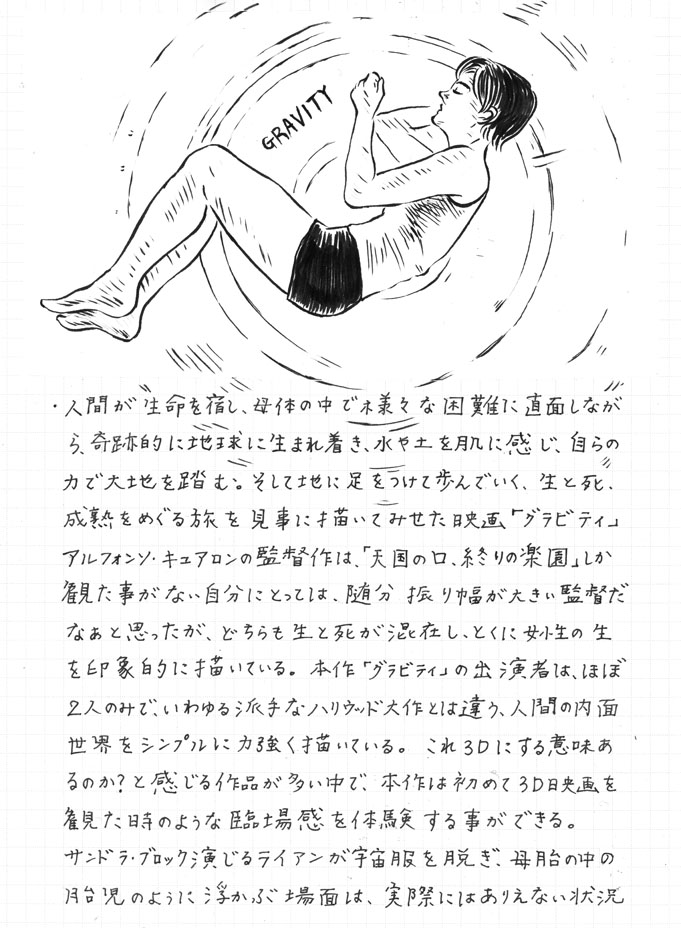 GRAVITY
・人間が生命を宿し、母体の中で様々な困難に直面しなが
ら、奇跡的に地球に生まれ着き、水や土を肌に感じ、自らの
力で大地を踏む。そして地に足をつけて歩んでいく、生と死、
成熟をめぐる旅を見事に描いてみせた映画「グラビティ」
アルフォンソ・キュアロンの監督作は、「天国の口、終りの楽園」しか
観た事がない自分にとっては、随分振り幅が大きい監督だ
なぁと思ったが、どちらも生と死が混在し、とくに女性の生
を印象的に描いている。本作「グラビティ」の出演者は、ほぼ
2人のみで、いわゆる派手なハリウッド大作とは違う、人間の内面
世界をシンプルに力強く描いている。これ3Dにする意味あ
るのか?と感じる作品が多い中で、本作は初めて3D映画を
観た時のような臨場感を体験する事ができる。
サンドラ・ブロック演じるライアンが宇宙服を脱ぎ、母胎の中の
胎児のように浮かぶ場面は、実際にはありえない状況